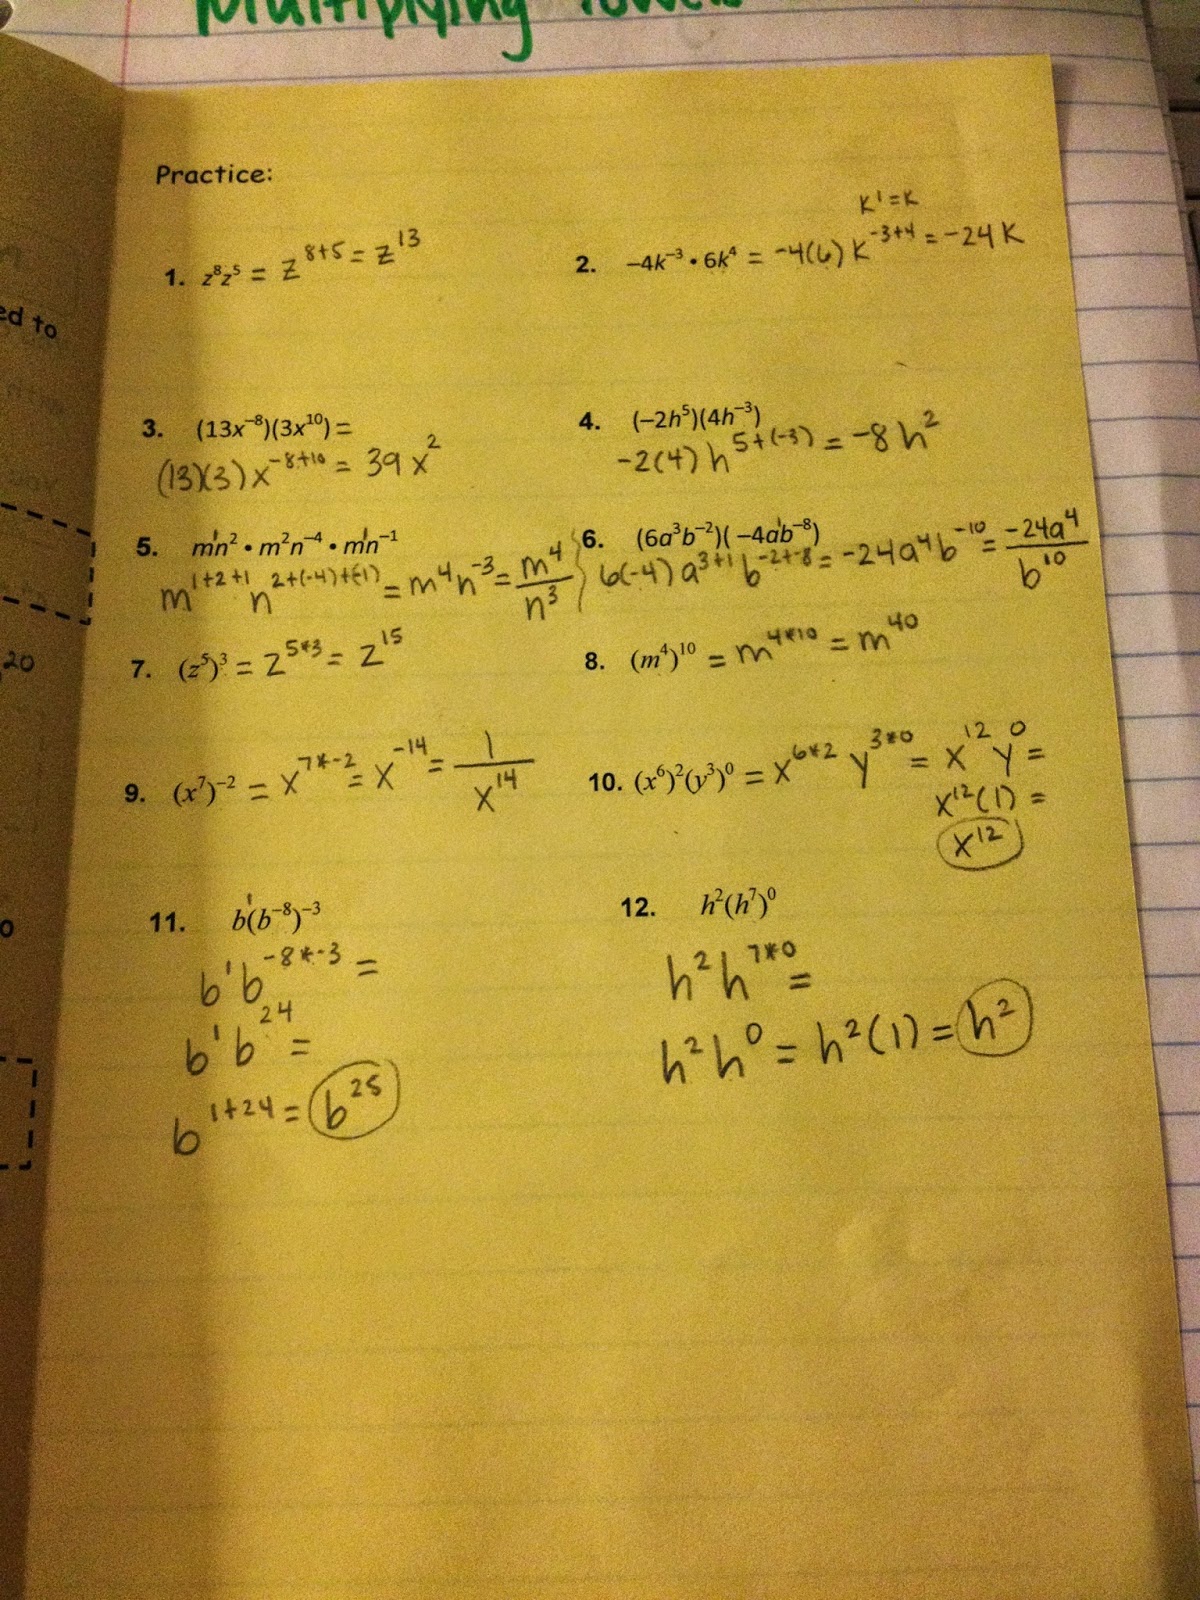 Multiplying Powers
Practice:
K¹ = K
1. z⁸z⁵ = z⁸⁺⁵ = z¹³
2. −4k⁻³ • 6k⁴ = -4(6)K⁻³⁺⁴ = -24K
3. (13x⁻⁸)(3x¹⁰) =
(13)(3)x⁻⁸⁺¹⁰ = 39x²
4. (−2h⁵)(4h⁻³)
-2(4)h⁵⁺⁽⁻³⁾ = -8h²
5. m¹n² • m²n⁻⁴ • m¹n⁻¹
m¹⁺²⁺¹ n²⁺⁽⁻⁴⁾⁺⁽⁻¹⁾ = m⁴n⁻³ = m⁴/n³
6. (6a³b⁻²)(−4a¹b⁻⁸)
6(-4)a³⁺¹b⁻²⁺⁻⁸ = -24a⁴b⁻¹⁰ = -24a⁴/b¹⁰
7. (z⁵)³ = z⁵*³ = z¹⁵
8. (m⁴)¹⁰ = m⁴*¹⁰ = m⁴⁰
9. (x⁷)⁻² = x⁷*⁻² = x⁻¹⁴ = 1/x¹⁴
10. (x⁶)²(y³)⁰ = x⁶*² y³*⁰ = x¹² y⁰ =
x¹²(1) =
x¹²
11. b¹(b⁻⁸)⁻³
b¹b⁻⁸*⁻³ =
b¹b²⁴ =
b¹⁺²⁴ = b²⁵
12. h²(h⁷)⁰
h²h⁷*⁰ =
h²h⁰ = h²(1) = h²
ed to
20